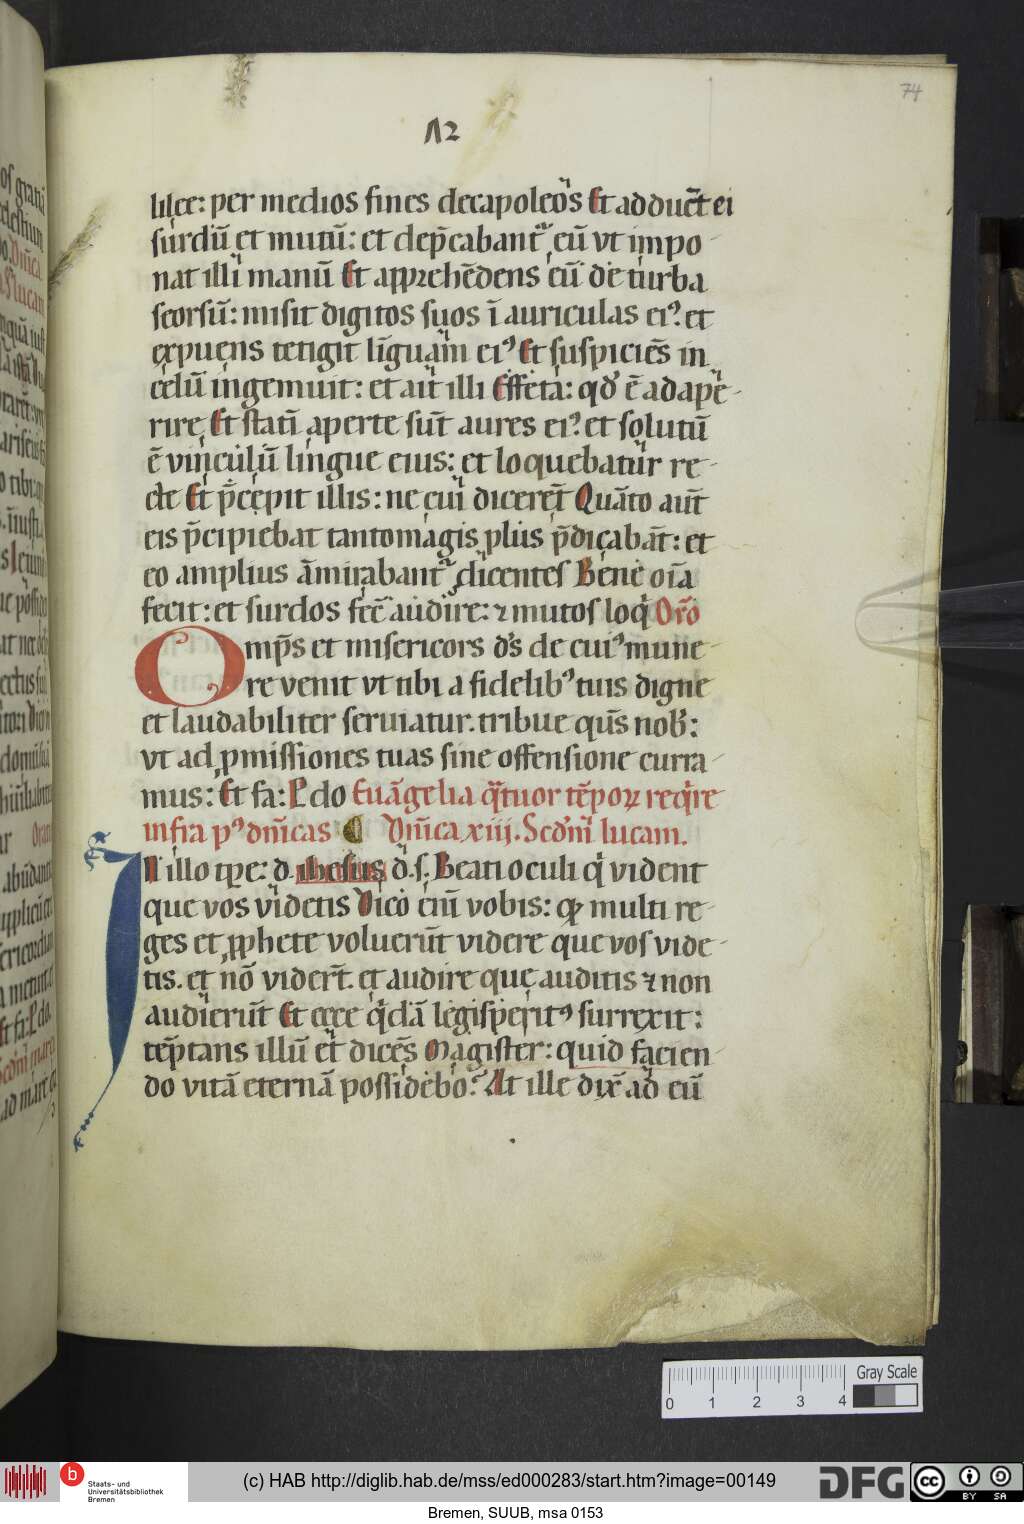 74
Λ2
lilęe: per medios fines decapoleos Et adducūt ei
surdū et mutū: et dep̄cabant᷑ eū vt impo-
nat illi manū Et apprehēdens eū de turba
seorsū: misit digitos suos ī auriculas eiꝰ. et
expuens tetigit līguam eiꝰ Et suspiciēs in
celū ingemuit: et ait illi Effeta: qd̓ ē adape-
rire. Et statī aperte sūt aures eiꝰ. et solutū
ē vinculū lingue eius: et loquebatur re-
cte Et p̄cepit illis: ne cui dicerēt Quāto aūt
eis p̄cipiebat tantomagis plus p̄dicabāt: et
eo amplius āmirabant᷑ dicentes Bene oīa
fecit: et surdos fec̄ audire: ⁊ mutos loq̇ Or̄o
Omp̄s et misericors d̓s de cuiꝰ mune-
re venit vt tibi a fidelibꝰ tuis digne
et laudabiliter seruiatur. tribue qūs nob̓:
vt ad ꝓmissiones tuas sine offensione curra-
mus: Et fa: P do Euāgelia q̄tuor tēpoꝝ reqͥre
infra pꝰ dn̄icas Dn̄ica xiij. Scd̓m lucam.
In illo tꝑe: d. ihesus d̓. s. Beati oculi qͥ vident
que vos videtis Dico eni̅ vobis: ꝙ multi re-
ges et ꝓphete voluerūt videre que vos vide-
tis. et nō vidert̄. et audire que auditis ⁊ non
audierūt Et ecce qͥdā legisperitꝰ surrexit:
tēptans illū et dicēs Magister: quid facien-
do vitā eternā possidebo? At ille dix̄ ad eū
Gray Scale
0 1 2 3 4
b Staats- und
Universitätsbibliothek
Bremen
(c) HAB http://diglib.hab.de/mss/ed000283/start.htm?image=00149
DFG
cc BY SA
Bremen, SUUB, msa 0153